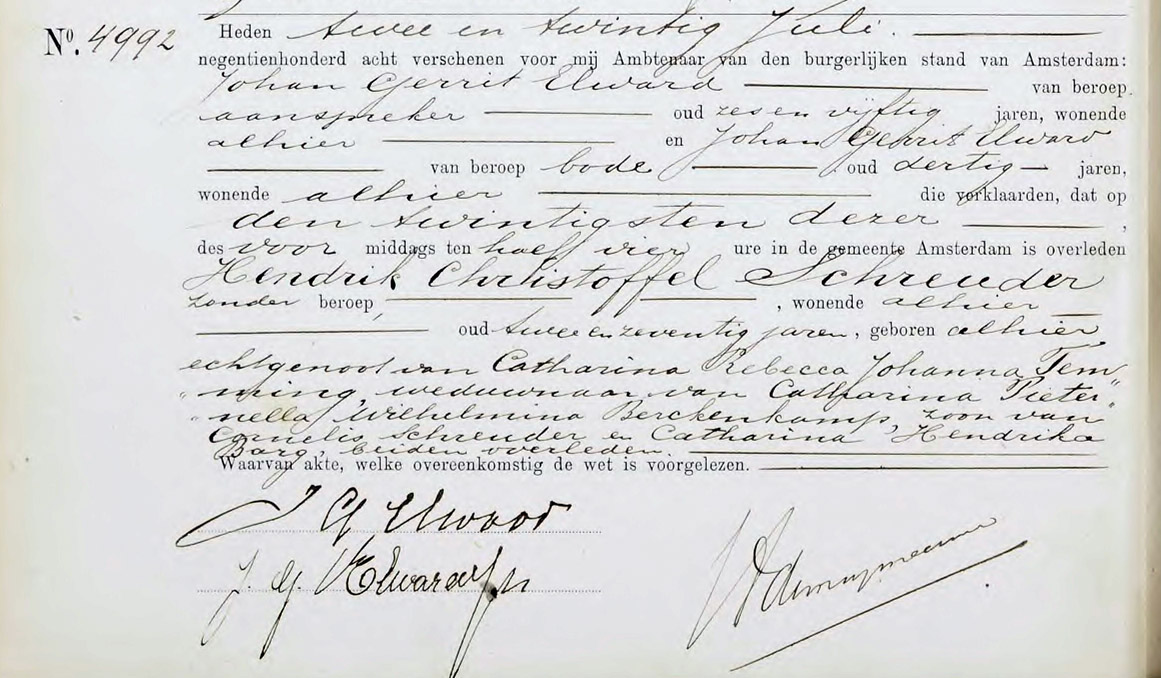 No. 4992 Heden twee en twintig Juli.
negentienhonderd acht verschenen voor mij Ambtenaar van den burgerlijken stand van Amsterdam:
Johan Gerrit Elward van beroep
aanspreker oud zes en vijftig jaren, wonende
alhier en Johan Gerrit Elward
van beroep bode oud dertig jaren,
wonende alhier die verklaarden, dat op
den twintigsten dezer,
des voor middags ten half vier ure in de gemeente Amsterdam is overleden
Hendrik Christoffel Schreuder
zonder beroep, , wonende alhier
oud twee en zeventig jaren, geboren alhier
echtgenoot van Catharina Rebecca Johanna Tem„
„ming, weduwnaar van Catharina Pieter„
„nella Wilhelmina Berckenkamp, zoon van
Cornelis Schreuder en Catharina Hendrika
Barg, beiden overleden.
Waarvan akte, welke overeenkomstig de wet is voorgelezen.
J G Elward
J. G. Elward Jr